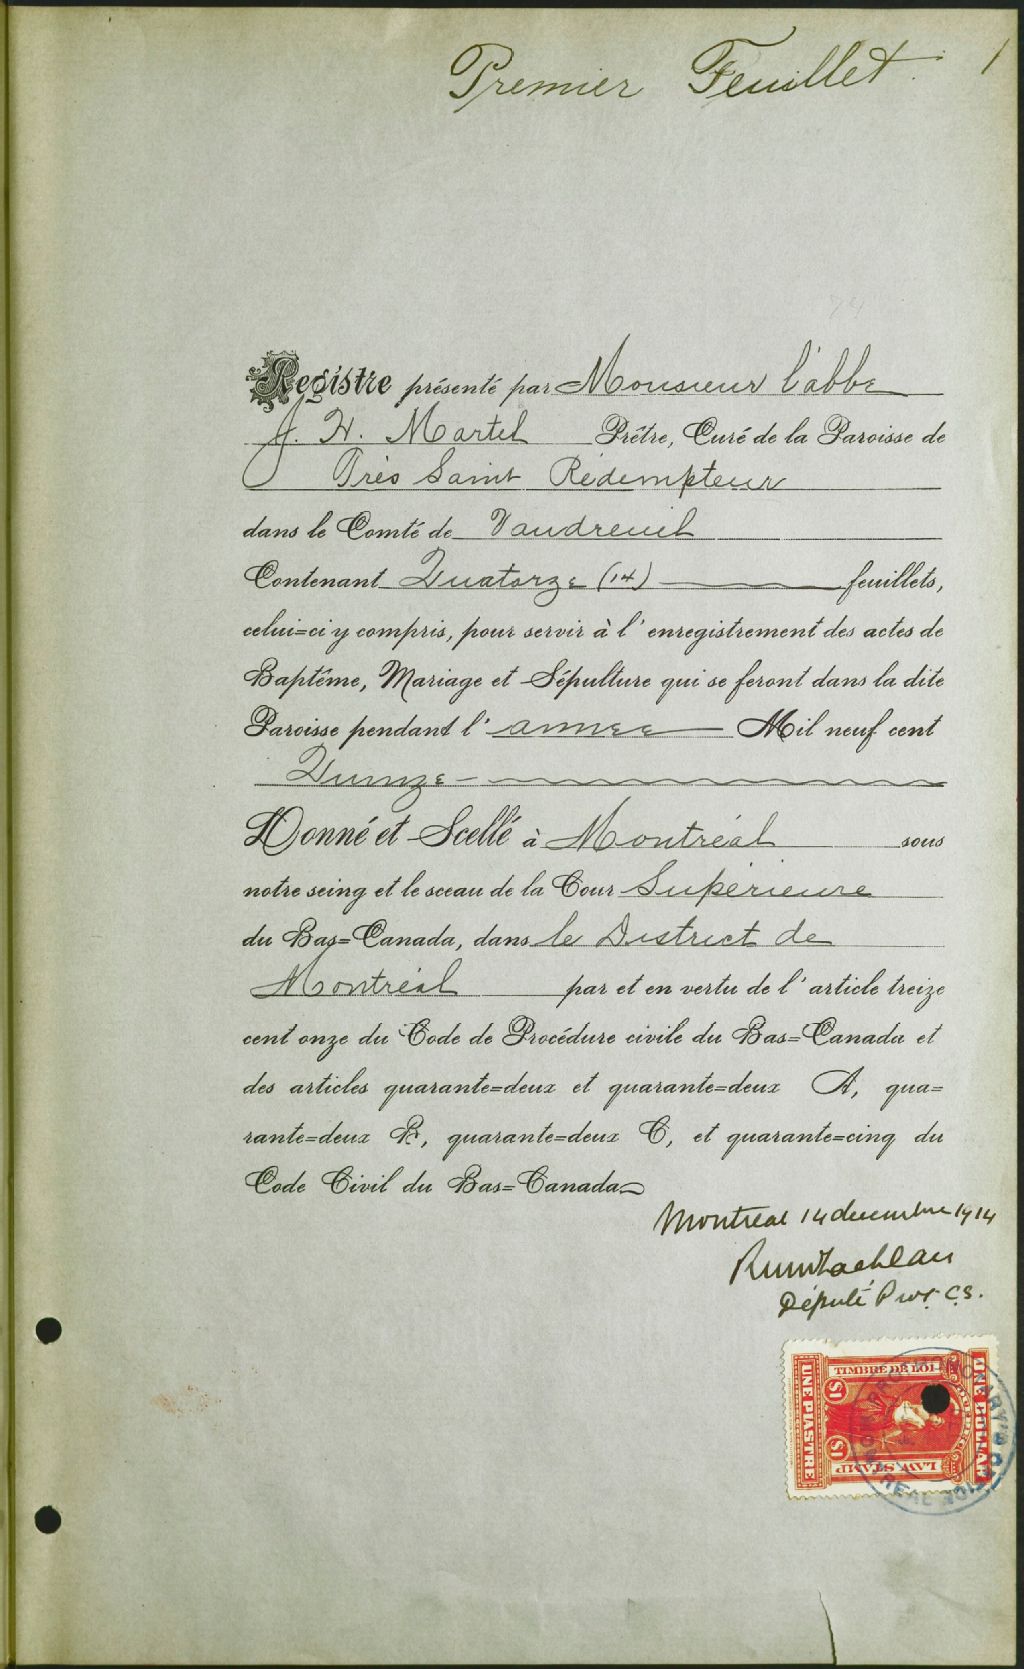 Premier Feuillet. 1
Registre présenté par Monsieur l'abbé
J. H. Martel Prêtre, Curé de la Paroisse de
Très Saint Rédempteur
dans le Comté de Vaudreuil
Contenant Quatorze (14) feuillets,
celui=ci y compris, pour servir à l'enregistrement des actes de
Baptême, Mariage et Sépulture qui se feront dans la dite
Paroisse pendant l'année Mil neuf cent
Quinze
Donné et Scellé à Montréal sous
notre seing et le sceau de la Cour Supérieure
du Bas=Canada, dans le District de
Montréal par et en vertu de l'article treize
cent onze du Code de Procédure civile du Bas=Canada et
des articles quarante=deux et quarante=deux A, qua=
rante=deux B, quarante=deux C, et quarante=cinq du
Code Civil du Bas=Canada
Montréal 14 decembre 1914
Député Prot. C.S.
TIMBRE DE LOI
UNE PIASTRE
$1
$1
LAW STAMP
ONE DOLLAR
PROTHONOTARY'S
MONTREAL